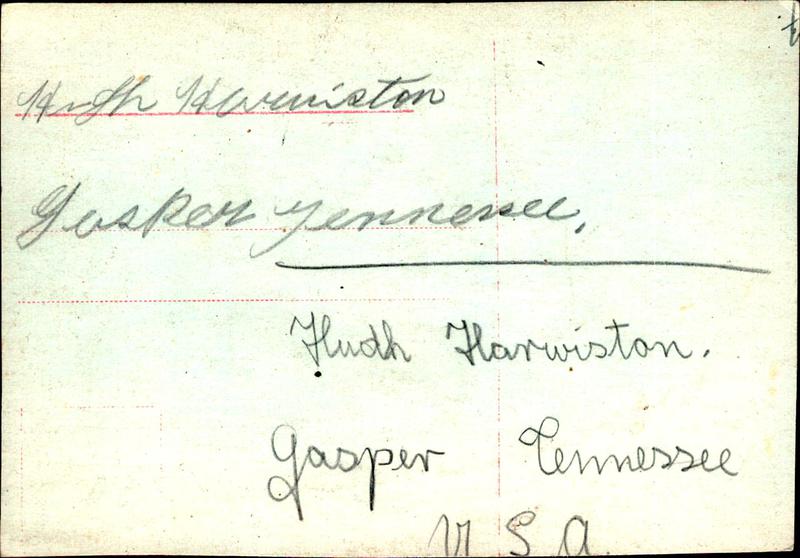 Hugh Harwiston
Gasper Tennessee.
Hudh Harwiston.
Gasper Tennessee
U S A.